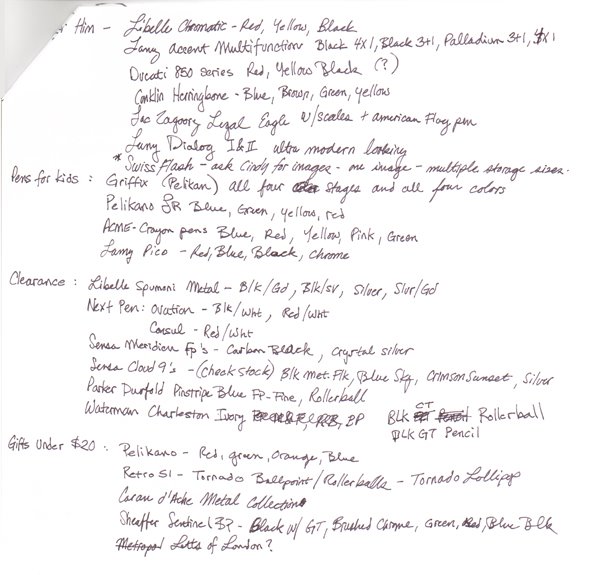 Him - Libelle Chromatic - Red, Yellow, Black
Lamy accent Multifunction Black 4x1, Black 3+1, Palladium 3+1, 4x1
Ducati 850 series Red, Yellow Black (?)
Conklin Herringbone - Blue, Brown, Green, Yellow
Jac Zagoory Legal Eagle w/scales + american Flag pen
Lamy Dialog I & II ultra modern looking
* Swiss Flash - ask Cindy for images - one image - multiple storage sizes.
Pens for kids : Griffix (Pelikan) all four stages and all four colors
Pelikano JR Blue, Green, yellow, red
ACME - Crayon pens Blue, Red, Yellow, Pink, Green
Lamy Pico - Red, Blue, Black, chrome
Clearance : Libelle Spumoni Metal - Blk/Gd, Blk/sv, Silver, Slvr/Gd
Next Pen: Ovation - Blk/Wht, Red/Wht
Consul - Red/Wht
Sensa Meridian Fp's - Carbon Black, Crystal silver
Sensa Cloud 9's - (Check Stock) Blk Met. Flk, Blue Sky, Crimson Sunset, Silver
Parker Duofold Pinstripe Blue FP-Fine, Rollerball
Waterman Charleston Ivory BP BLK CT Rollerball
BLK GT Pencil
Gifts Under $20 : Pelikano - Red, green, Orange, Blue
Retro 51 - Tornado Ballpoint/Rollerballs - Tornado Lollipop
Caran d'Ache Metal Collection
Sheaffer Sentinel BP - Black w/ GT, Brushed Chrome, Green, Red, Blue Blk
Letts of London?